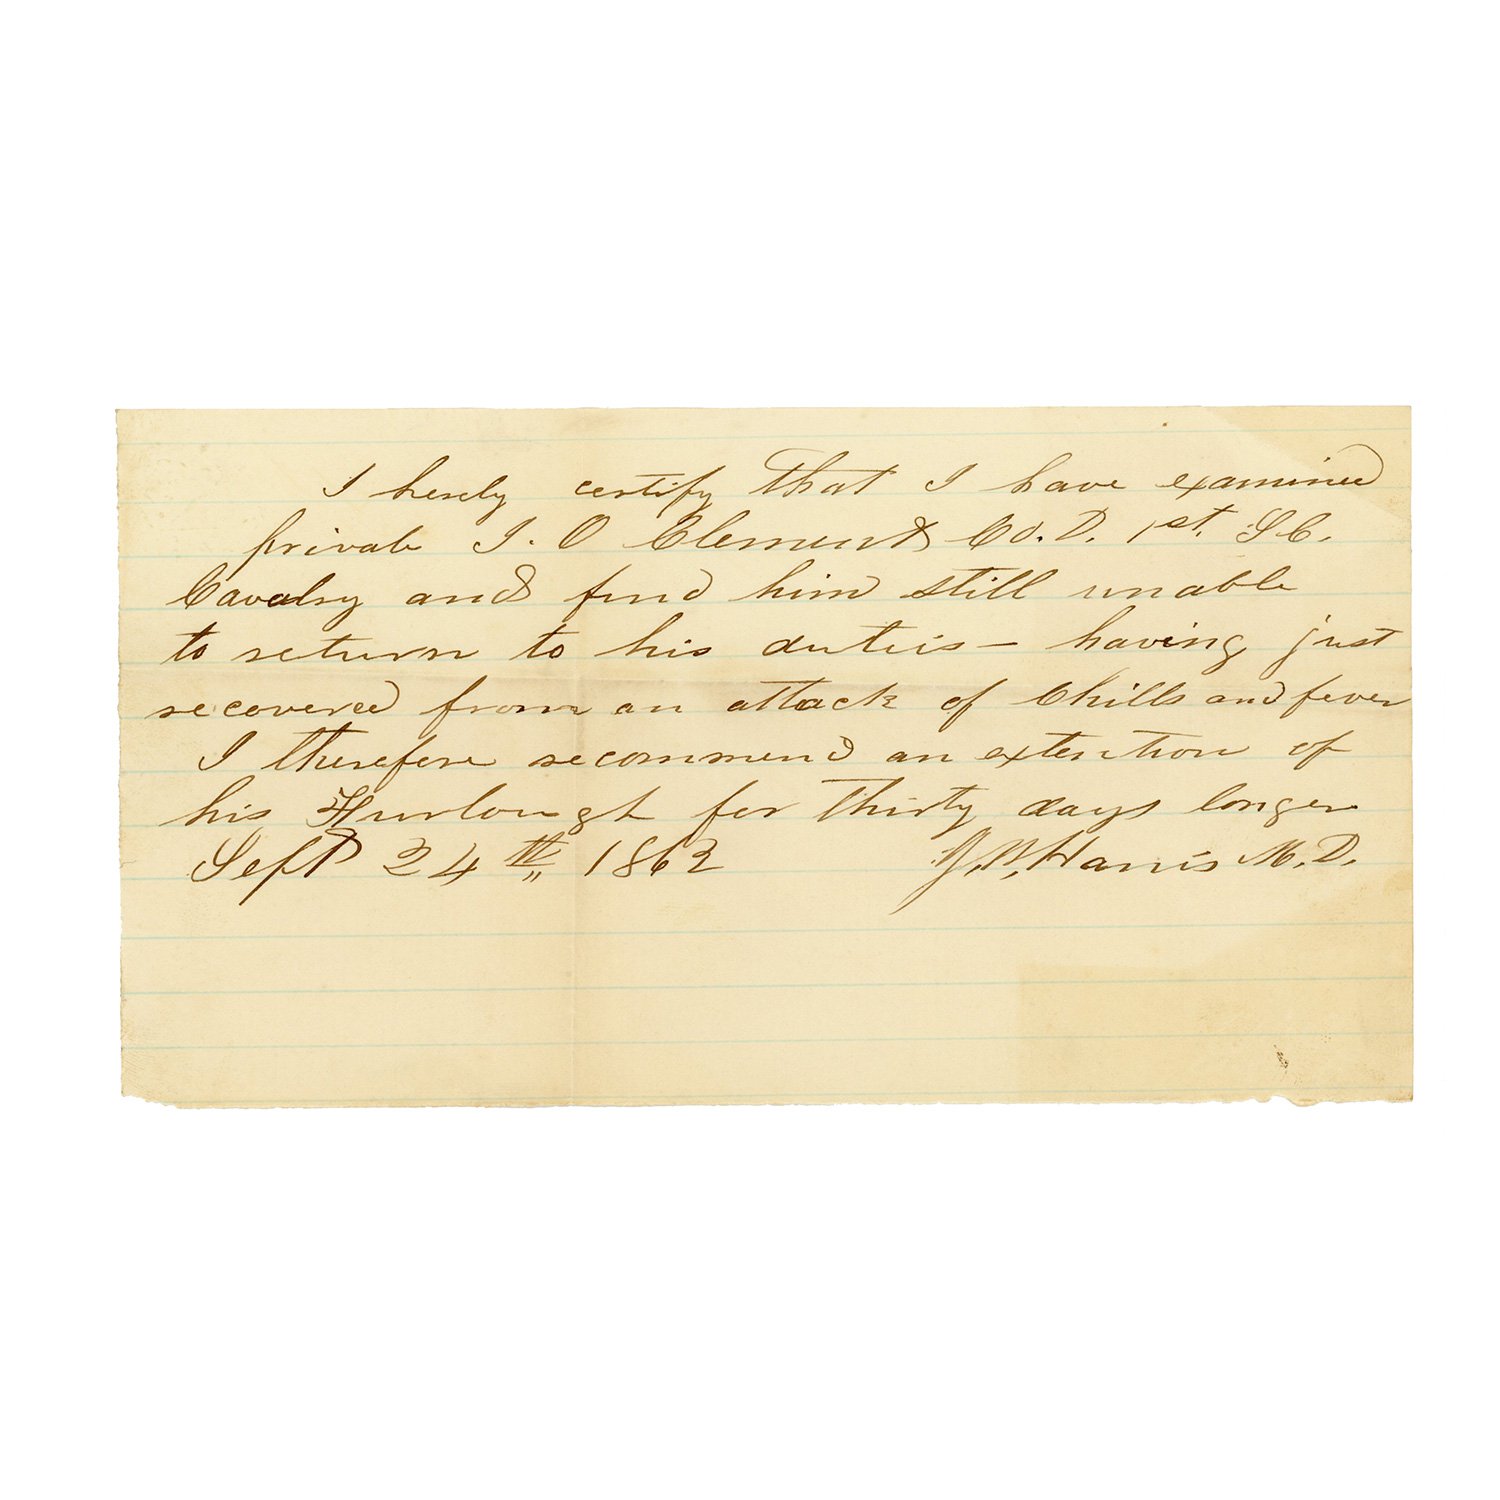 I hereby certify that I have examined
private I. O Clement Co. D. 1st. S C.
Cavalry and find him still unable
to return to his duties – having just
recovered from an attack of Chills and fever
I therefore recommend an extention of
his Furlough for thirty days longer
Sept 24th 1862 Harris M. D.